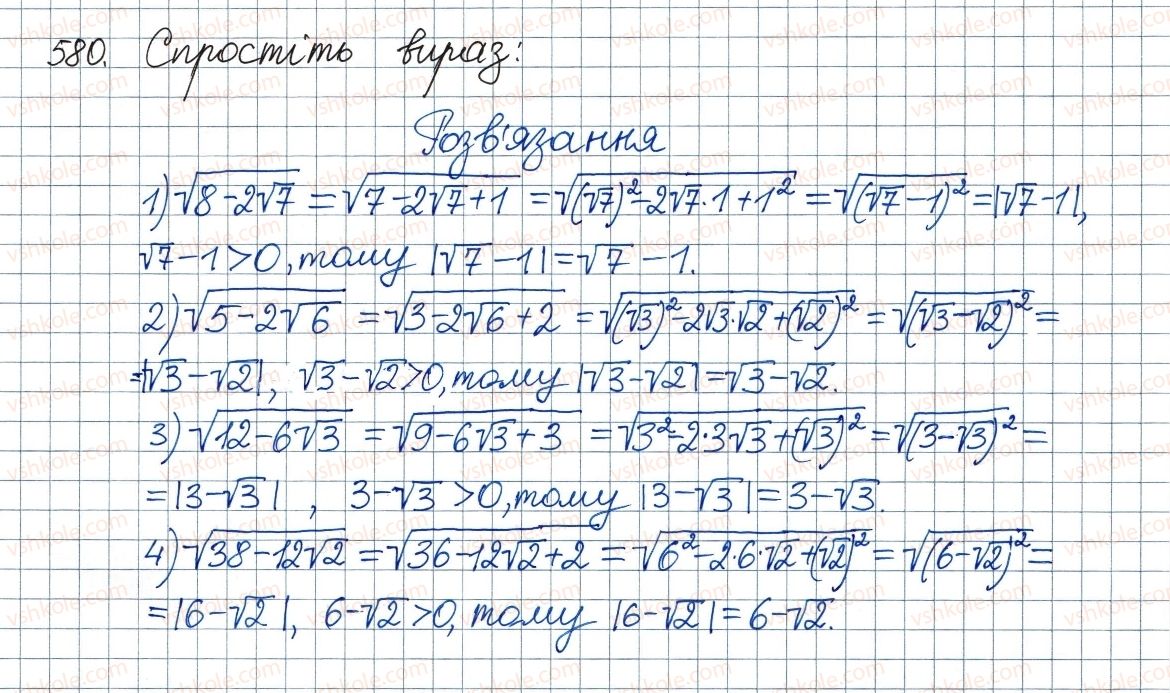 580. Спростіть вираз:
Розв'язання
1) √(8-2√7) = √(7-2√7+1) = √((√7)²-2√7·1+1²) = √((√7-1)²) = |√7-1|,
√7-1>0, тому |√7-1| = √7-1.
2) √(5-2√6) = √(3-2√6+2) = √((√3)²-2√3·√2+(√2)²) = √((√3-√2)²) =
=|√3-√2|, √3-√2>0, тому |√3-√2| = √3-√2.
3) √(12-6√3) = √(9-6√3+3) = √(3²-2·3√3+(√3)²) = √((3-√3)²) =
= |3-√3|, 3-√3 >0, тому |3-√3| = 3-√3.
4) √(38-12√2) = √(36-12√2+2) = √(6²-2·6·√2+(√2)²) = √((6-√2)²) =
= |6-√2|, 6-√2>0, тому |6-√2| = 6-√2.